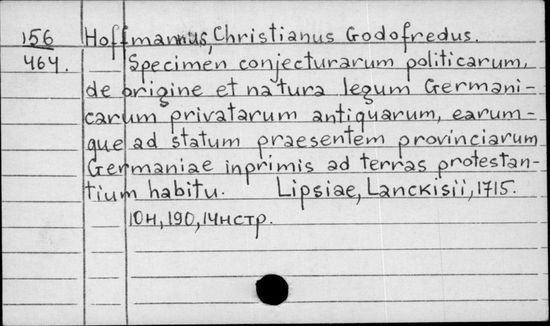 156 Hoffmannus, Christianus Godofredus.
464. Specimen conjecturarum politicarum,
de origine et natura legum Germani-
carum privatarum antiquarum, earum-
que ad statum praesentem provinciarum
Germaniae inprimis ad terras protestan-
tium habitu. Lipsiae, Lanckisii, 1715.
10н, 190, 14нстр.